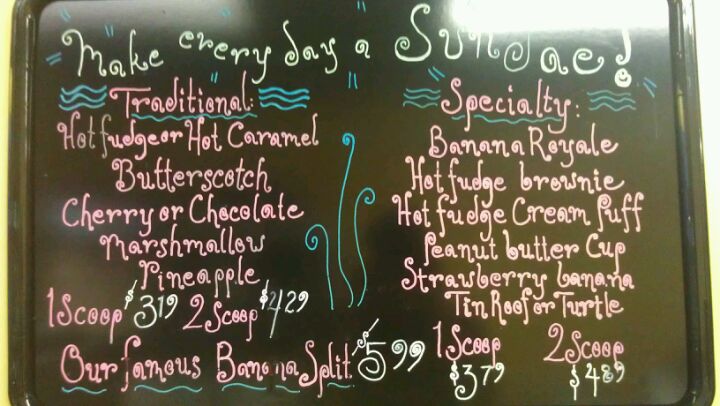 Make every day a Sundae!
Traditional:
Hot fudge or Hot Caramel
Butterscotch
Cherry or Chocolate
Marshmallow
Pineapple
1 Scoop $3.19 2 Scoop $4.29
Our famous Banana Split $5.99
Specialty:
Banana Royale
Hot fudge brownie
Hot fudge Cream Puff
Peanut butter Cup
Strawberry banana
Tin Roof or Turtle
1 Scoop 2 Scoop
$3.79 $4.89